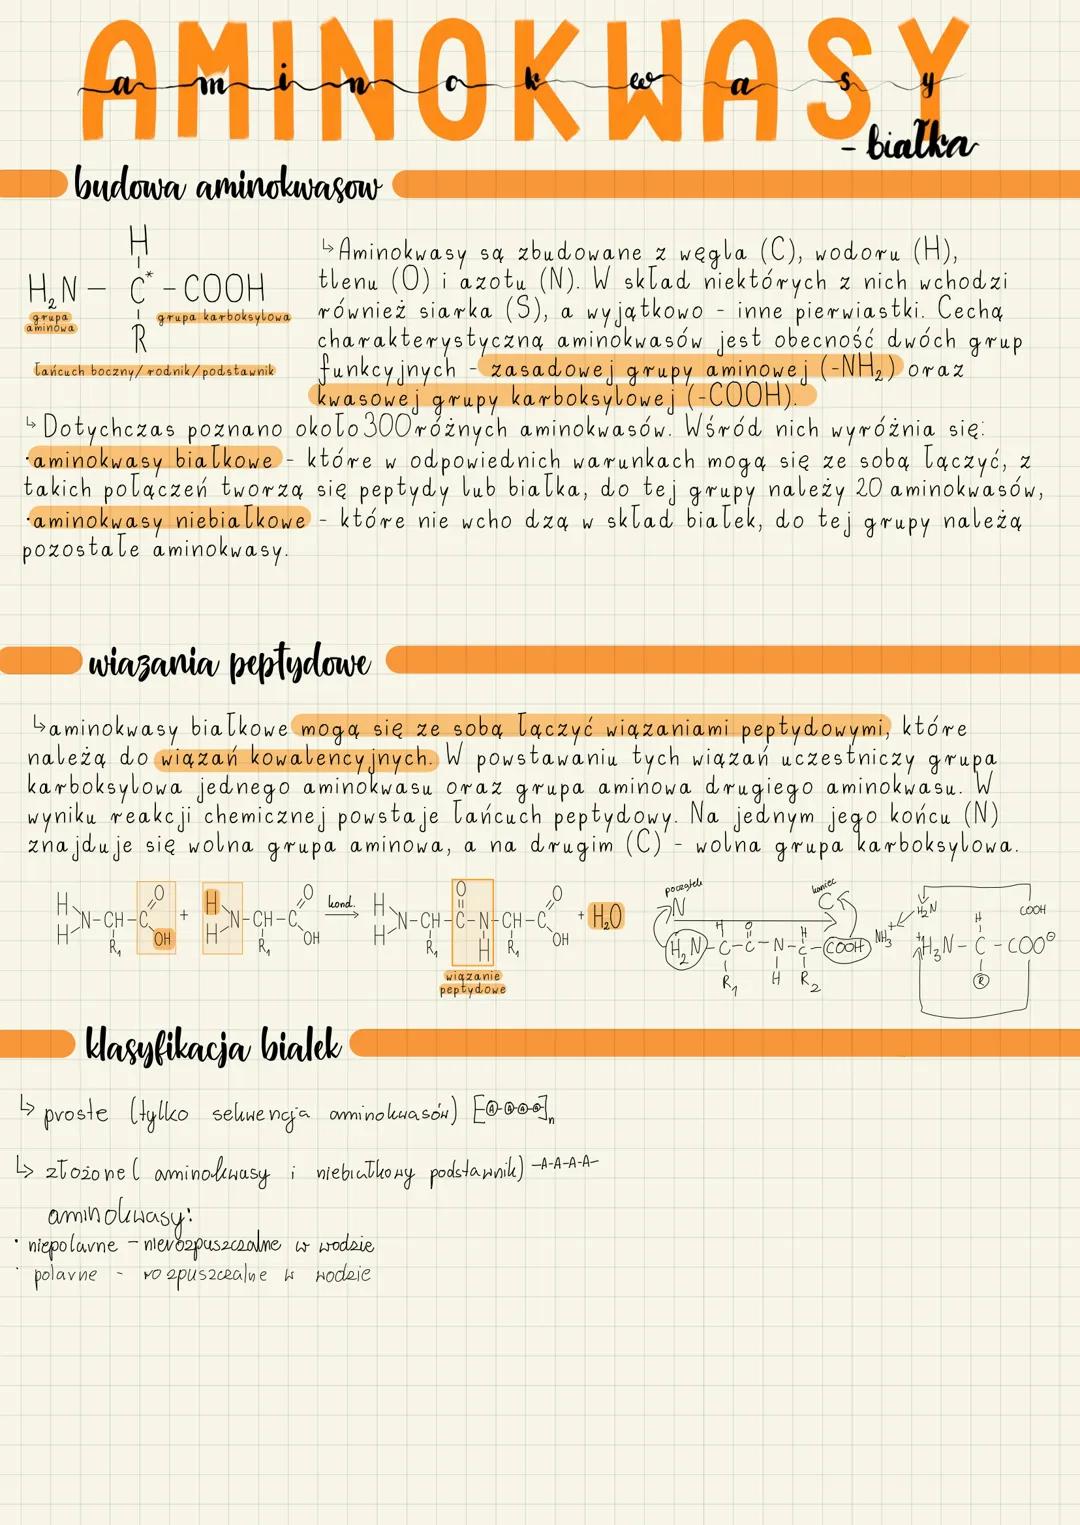 AMINOKWASY
aminokwasy
- białka
budowa aminokwasow
H
H₂N - C* - COOH
grupa aminowa
grupa karboksylowa
R
łańcuch boczny/rodnik/podstawnik
↳Aminokwasy są zbudowane z węgla (C), wodoru (H),
tlenu (O) i azotu (N). W skład niektórych z nich wchodzi
również siarka (S), a wyjątkowo - inne pierwiastki. Cechą
charakterystyczną aminokwasów jest obecność dwóch grup
funkcyjnych - zasadowej grupy aminowej (-NH₂) oraz
kwasowej grupy karboksylowej (-COOH).
↳Dotychczas poznano około 300 różnych aminokwasów. Wśród nich wyróżnia się:
·aminokwasy białkowe - które w odpowiednich warunkach mogą się ze sobą łączyć, z
takich połączeń tworzą się peptydy lub białka, do tej grupy należy 20 aminokwasów,
·aminokwasy niebiałkowe - które nie wcho dzą w skład białek, do tej grupy należą
pozostałe aminokwasy.
wiazania peptydowe
↳aminokwasy białkowe mogą się ze sobą łączyć wiązaniami peptydowymi, które
należą do wiązań kowalencyjnych. W powstawaniu tych wiązań uczestniczy grupa
karboksylowa jednego aminokwasu oraz grupa aminowa drugiego aminokwasu. W
wyniku reakcji chemicznej powstaje łańcuch peptydowy. Na jednym jego końcu (N)
znajduje się wolna grupa aminowa, a na drugim (C) - wolna grupa karboksylowa.
H H N-CH-C O OH R₁ + H H N-CH-C O OH R₁ kond. → H H N-CH-C-N-CH-C O O OH R₁ H R₁ + H₂O
wiązanie
peptydowe
początek
N
koniec
C
H₂N-C-C-N-C-COOH
H O H
R₁ H R₂
NH₃⁺
H₂N COOH
H
⁺H₃N - C - COO⊖
R
klasyfikacja białek
↳ proste (tylko sekwencja aminokwasów) [-A-A-A-A-]n
↳ złożone ( aminokwasy i niebiałkowy podstawnik) -A-A-A-A-
aminokwasy:
· niepolarne - nierozpuszczalne w wodzie
· polarne - rozpuszczalne w wodzie